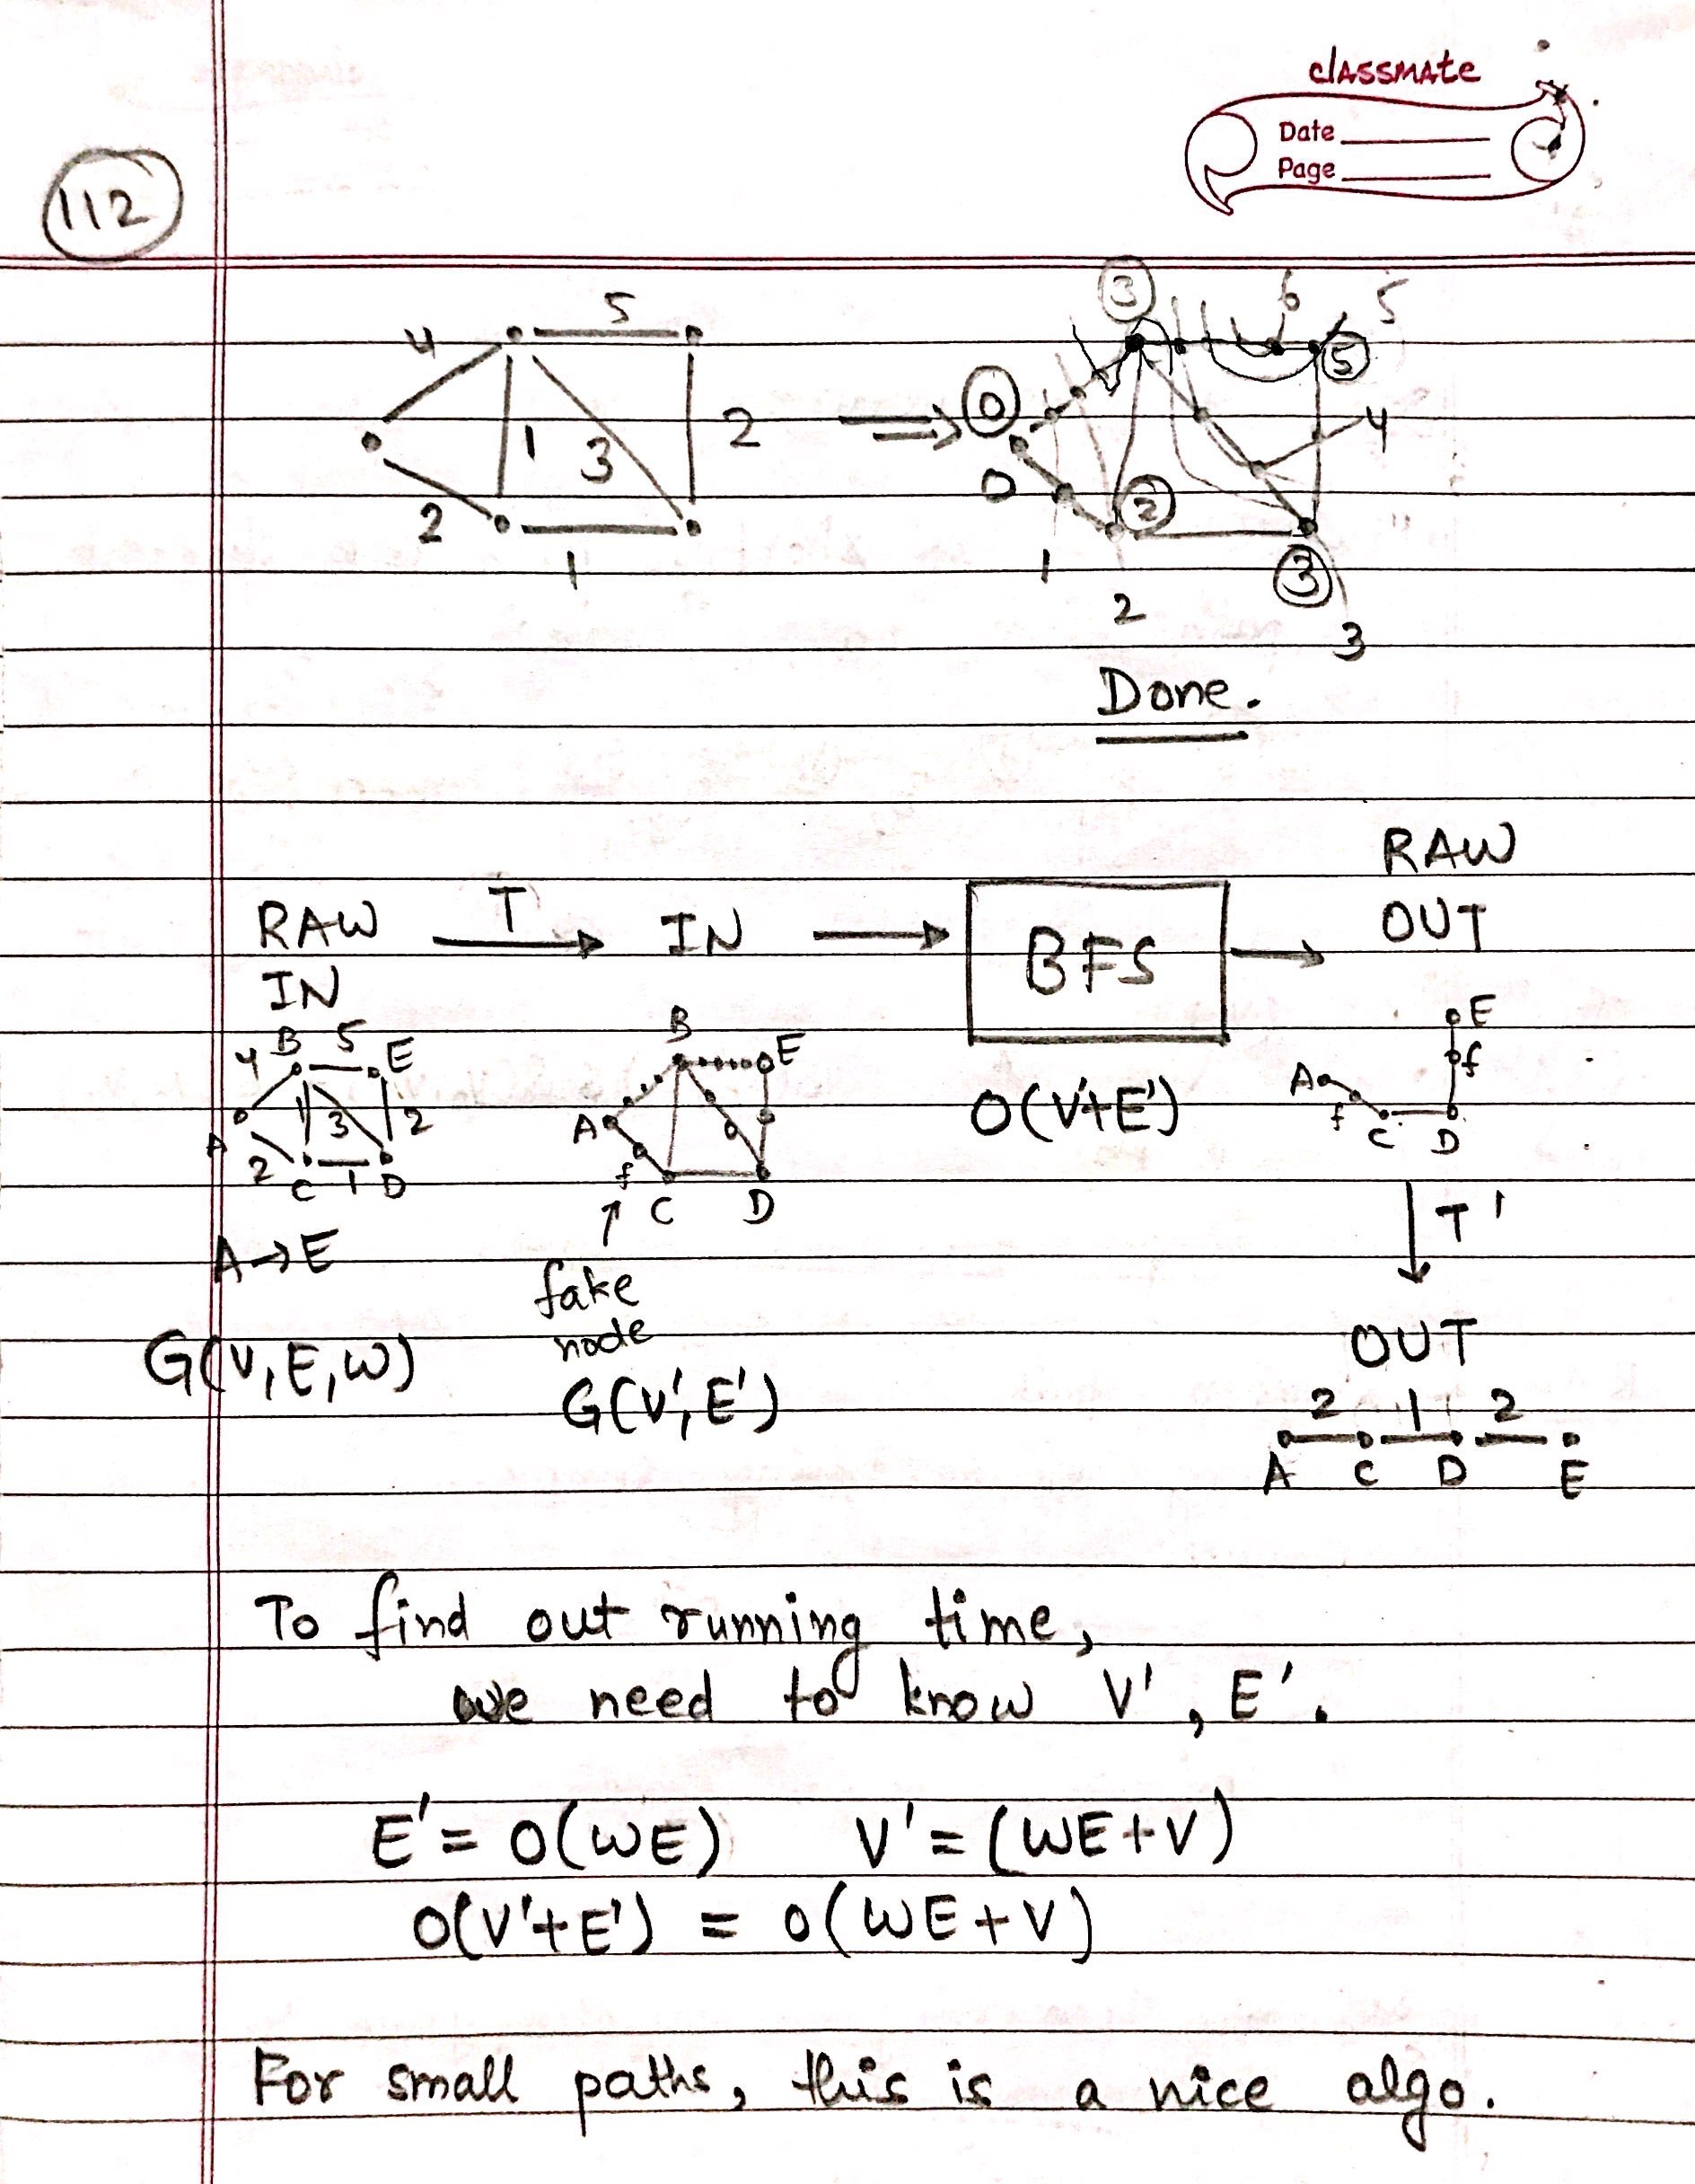 classmate
Date
Page
112
5
4
1
3
2
2
1
3
6
5
5
0
0
4
2
1
3
2
3
Done.
RAW IN
T
IN
BFS
RAW OUT
4 B 5 E
A 1 3 2
2 C 1 D
A→E
G(V,E,W)
B
E
A
f
C D
fake node
G(V',E')
O(V'+E')
E
f
A
f
C D
T'
OUT
2 1 2
A C D E
To find out running time,
we need to know V', E'.
E' = O(WE) V' = (WE+V)
O(V'+E') = O(WE+V)
For small paths, this is a nice algo.